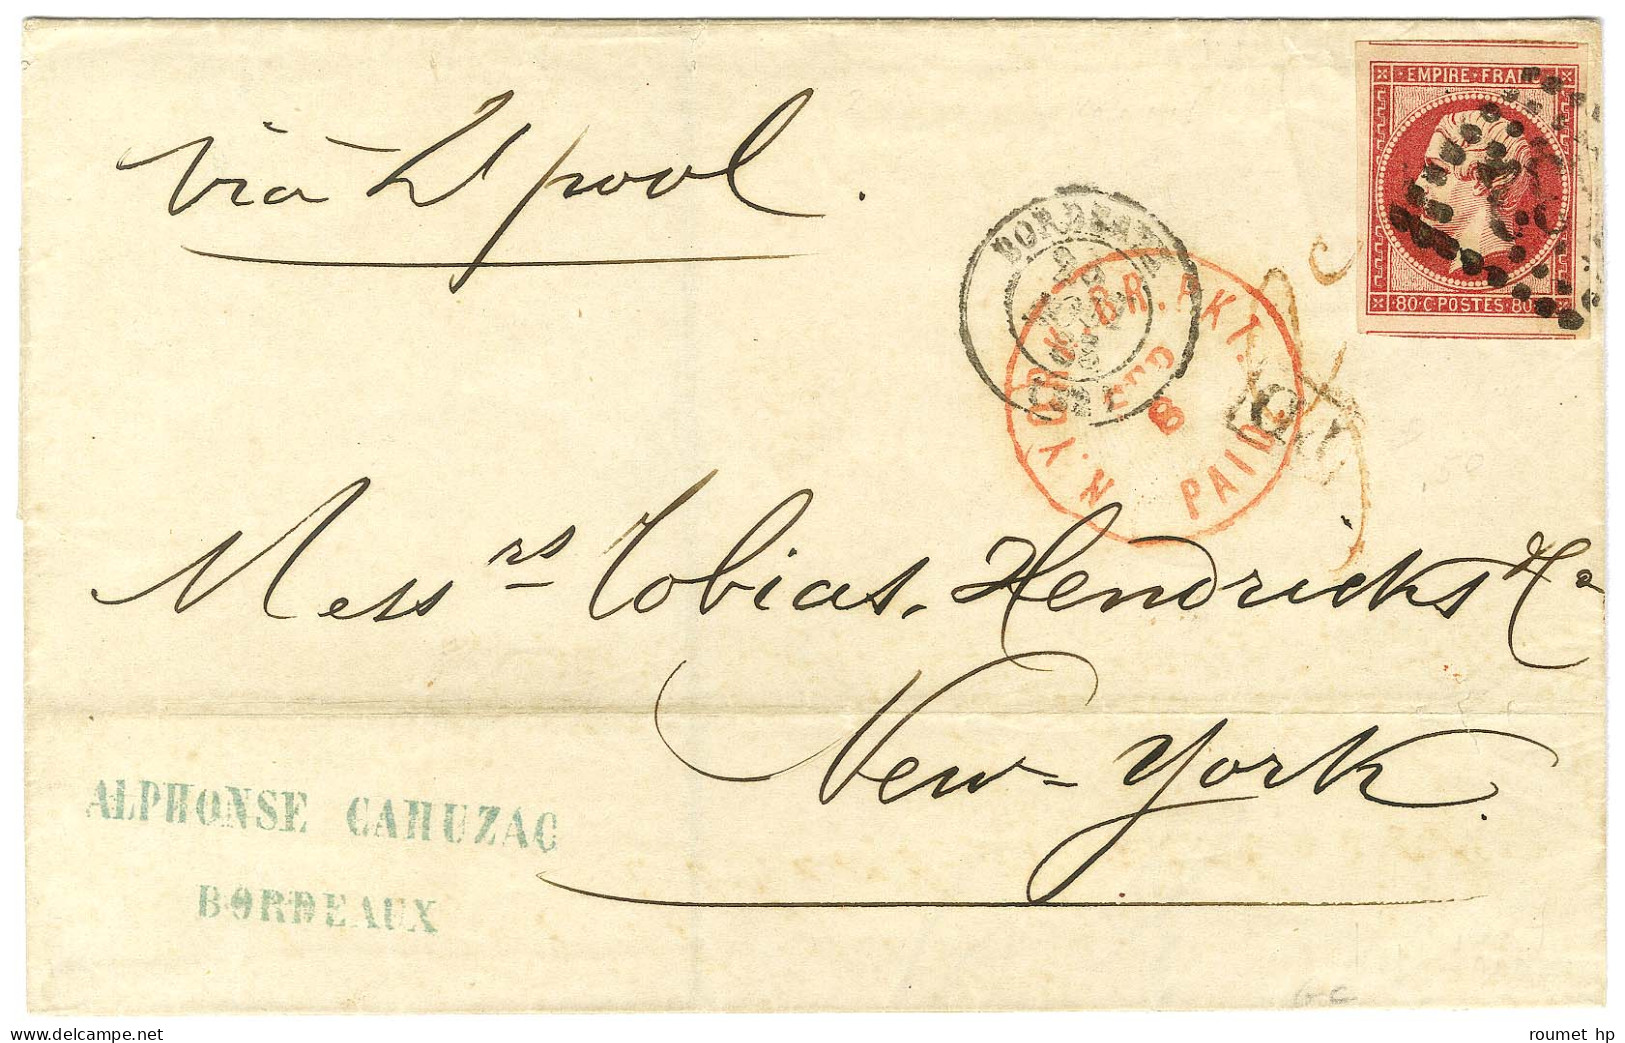 via L'pool.
EMPIRE · FRANC
80 · C · POSTES · 80
BORDEAUX
N. YORK BR. PKT.
FEB
8
PAID
Messrs Tobias, Hendricks & Co
New-York.
ALPHONSE CAHUZAC
BORDEAUX
roumet hp